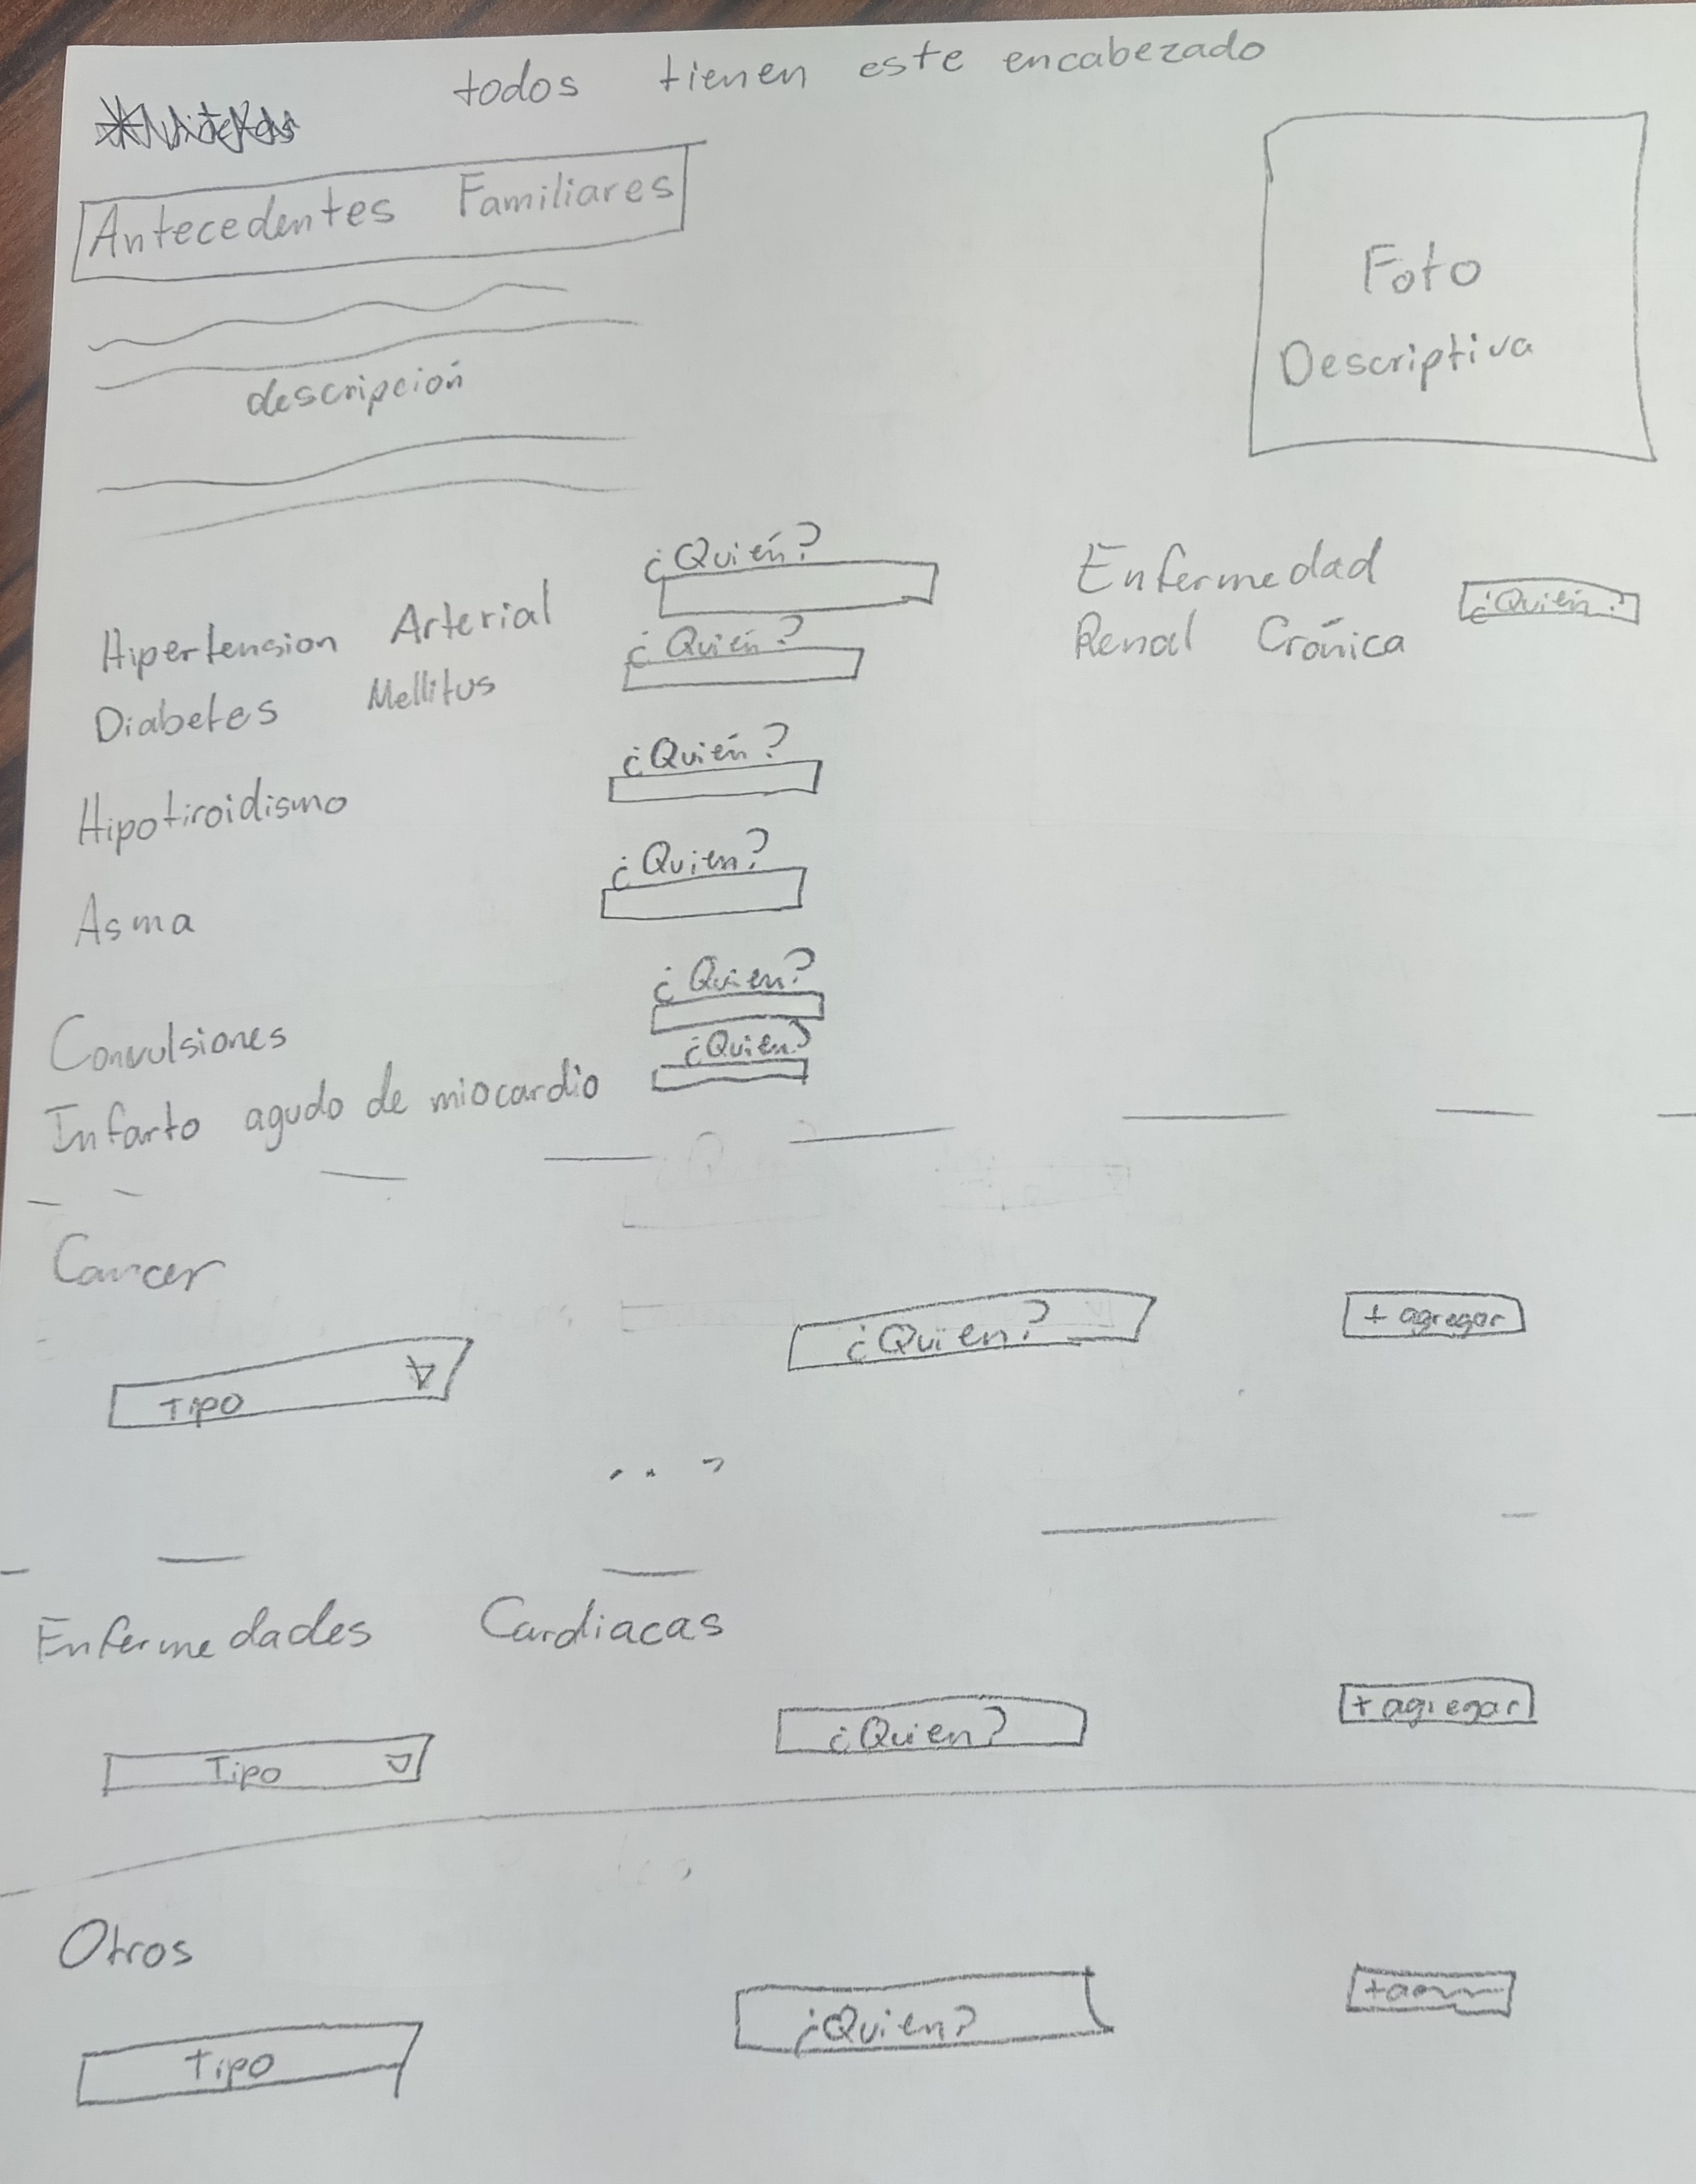 todos tienen este encabezado
Antecedentes Familiares
Foto
Descriptiva
descripción
Hipertension Arterial
¿Quién?
Enfermedad
Renal Crónica
¿Quién?
Diabetes Mellitus
¿Quién?
Hipotiroidismo
¿Quién?
Asma
¿Quien?
Convulsiones
¿Quien?
Infarto agudo de miocardio
¿Quien?
Cancer
Tipo
¿Quien?
+ agregar
Enfermedades Cardiacas
Tipo
¿Quien?
+ agregar
Otros
Tipo
¿Quien?